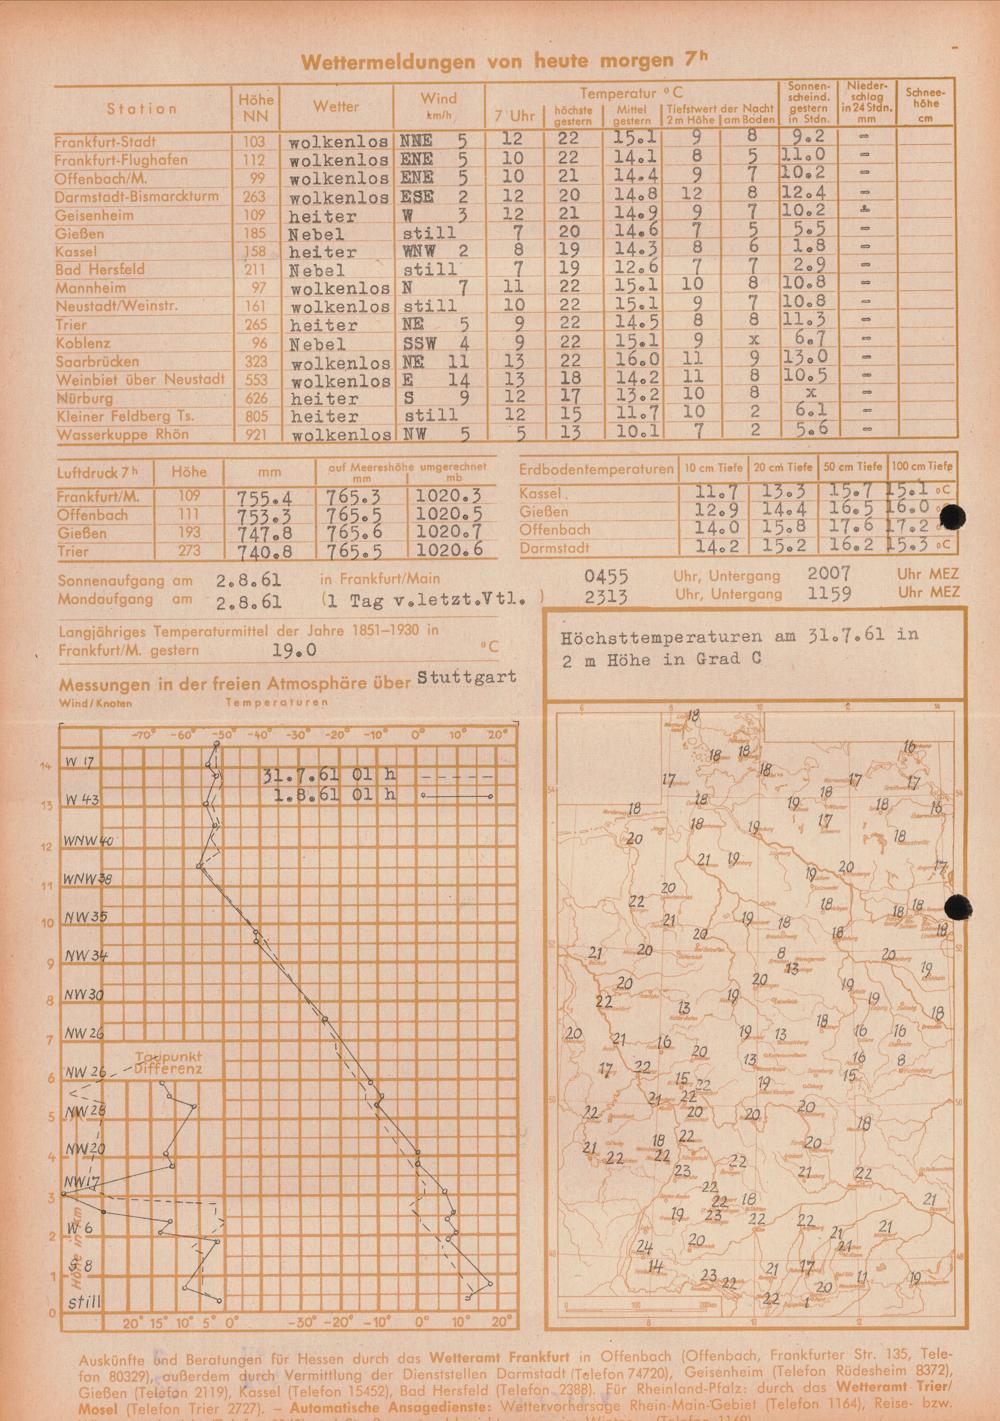 Wettermeldungen von heute morgen 7h
Station Höhe NN Wetter Wind km/h Temperatur °C Sonnen-scheind. gestern in Stdn. Nieder-schlag in 24 Stdn. mm Schnee-höhe cm
7 Uhr höchste gestern Mittel gestern Tiefstwert der Nacht 2 m Höhe am Boden
Frankfurt-Stadt 103 wolkenlos NNE 5 12 22 15.1 9 8 9.2 -
Frankfurt-Flughafen 112 wolkenlos ENE 5 10 22 14.1 8 5 11.0 -
Offenbach/M. 99 wolkenlos ENE 5 10 21 14.4 9 7 10.2 -
Darmstadt-Bismarckturm 263 wolkenlos ESE 2 12 20 14.8 12 8 12.4 -
Geisenheim 109 heiter W 3 12 21 14.9 9 7 10.2 -
Gießen 185 Nebel still 7 20 14.6 7 5 5.5 -
Kassel 158 heiter WNW 2 8 19 14.3 8 6 1.8 -
Bad Hersfeld 211 Nebel still 7 19 12.6 7 7 2.9 -
Mannheim 97 wolkenlos N 7 11 22 15.1 10 8 10.8 -
Neustadt/Weinstr. 161 wolkenlos still 10 22 15.1 9 7 10.8 -
Trier 265 heiter NE 5 9 22 14.5 8 8 11.3 -
Koblenz 96 Nebel SSW 4 9 22 15.1 9 x 6.7 -
Saarbrücken 323 wolkenlos NE 11 13 22 16.0 11 9 13.0 -
Weinbiet über Neustadt 553 wolkenlos E 14 13 18 14.2 11 8 10.5 -
Nürburg 626 heiter S 9 12 17 13.2 10 8 x -
Kleiner Feldberg Ts. 805 heiter still 12 15 11.7 10 2 6.1 -
Wasserkuppe Rhön 921 wolkenlos NW 5 5 13 10.1 7 2 5.6 -
Luftdruck 7h Höhe mm auf Meereshöhe umgerechnet mm mb
Frankfurt/M. 109 755.4 765.3 1020.3
Offenbach 111 753.3 765.5 1020.5
Gießen 193 747.8 765.6 1020.7
Trier 273 740.8 765.5 1020.6
Erdbodentemperaturen 10 cm Tiefe 20 cm Tiefe 50 cm Tiefe 100 cm Tiefe
Kassel. 11.7 13.3 15.7 15.1 °C
Gießen 12.9 14.4 16.5 16.0
Offenbach 14.0 15.8 17.6 17.2 °C
Darmstadt 14.2 15.2 16.2 15.3 °C
Sonnenaufgang am 2.8.61 in Frankfurt/Main 0455 Uhr, Untergang 2007 Uhr MEZ
Mondaufgang am 2.8.61 (1 Tag v.letzt.Vtl. ) 2313 Uhr, Untergang 1159 Uhr MEZ
Langjähriges Temperaturmittel der Jahre 1851–1930 in
Frankfurt/M. gestern 19.0 °C
Messungen in der freien Atmosphäre über Stuttgart
Wind/Knoten Temperaturen
-70° -60° -50° -40° -30° -20° -10° 0° 10° 20°
31.7.61 01 h
1.8.61 01 h
14 W 17
13 W 43
12 WNW 40
11 WNW 38
10 NW 35
9 NW 34
8 NW 30
7 NW 26
Taupunkt
Differenz
6 NW 26
5 NW 28
4 NW 20
3 NW 17
2 W 6
1 S 8
0 still
Höhe in km
20° 15° 10° 5° 0° -30° -20° -10° 0° 10° 20°
Höchsttemperaturen am 31.7.61 in
2 m Höhe in Grad C
6 8 10 12 14
18
18 18 16
17 18 17 17
18 18 19 18 18 16
20 18 19 17 18
21 19 19 20 17
22 20 18 18 18
21 20 19 18 18 18
21 20 8 13 20 19
20 22 13 19 20 19 19 18
20 21 16 20 19 13 18 16 16
17 22 15 22 13 19 16 15 8
22 21 22 20 20 20 18
21 22 18 22 22 20
23 22 21 22
22 22 18 21
19 23 22 22 21 21
24 20 21
14 23 22 21 17 20 11 19
22 1
6 8 10 12
Auskünfte und Beratungen für Hessen durch das Wetteramt Frankfurt in Offenbach (Offenbach, Frankfurter Str. 135, Tele-
fon 80329), außerdem durch Vermittlung der Dienststellen Darmstadt (Telefon 74720), Geisenheim (Telefon Rüdesheim 8372),
Gießen (Telefon 2119), Kassel (Telefon 15452), Bad Hersfeld (Telefon 2388). Für Rheinland-Pfalz: durch das Wetteramt Trier/
Mosel (Telefon Trier 2727). — Automatische Ansagedienste: Wettervorhersage Rhein-Main-Gebiet (Telefon 1164), Reise- bzw.